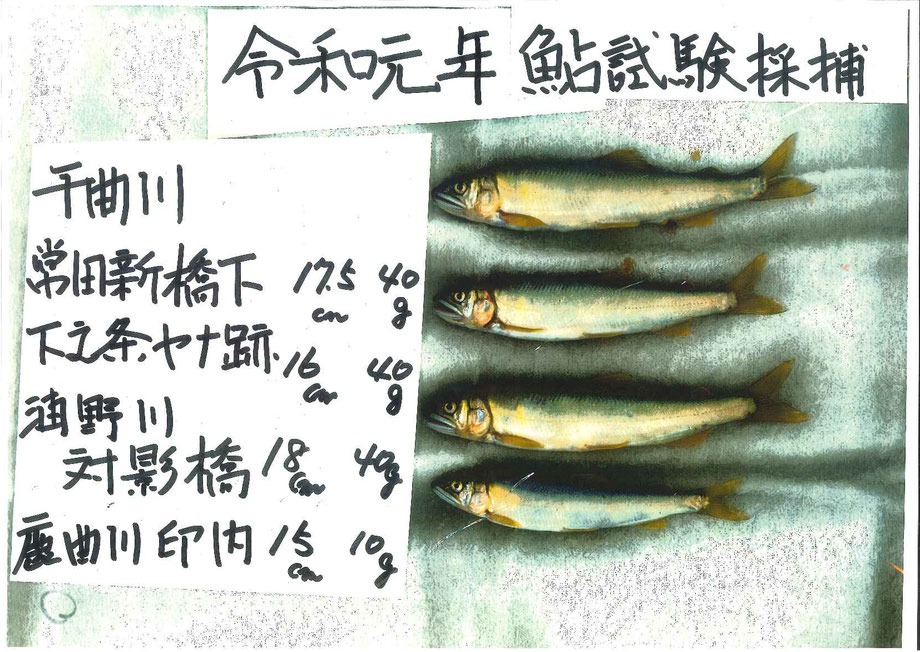 令和元年 鮎試験採捕
千曲川
常田新橋下 17.5cm 40g
下之条ヤナ跡 16cm 40g
湯野川
対影橋 18cm 40g
鹿曲川印内 15cm 10g